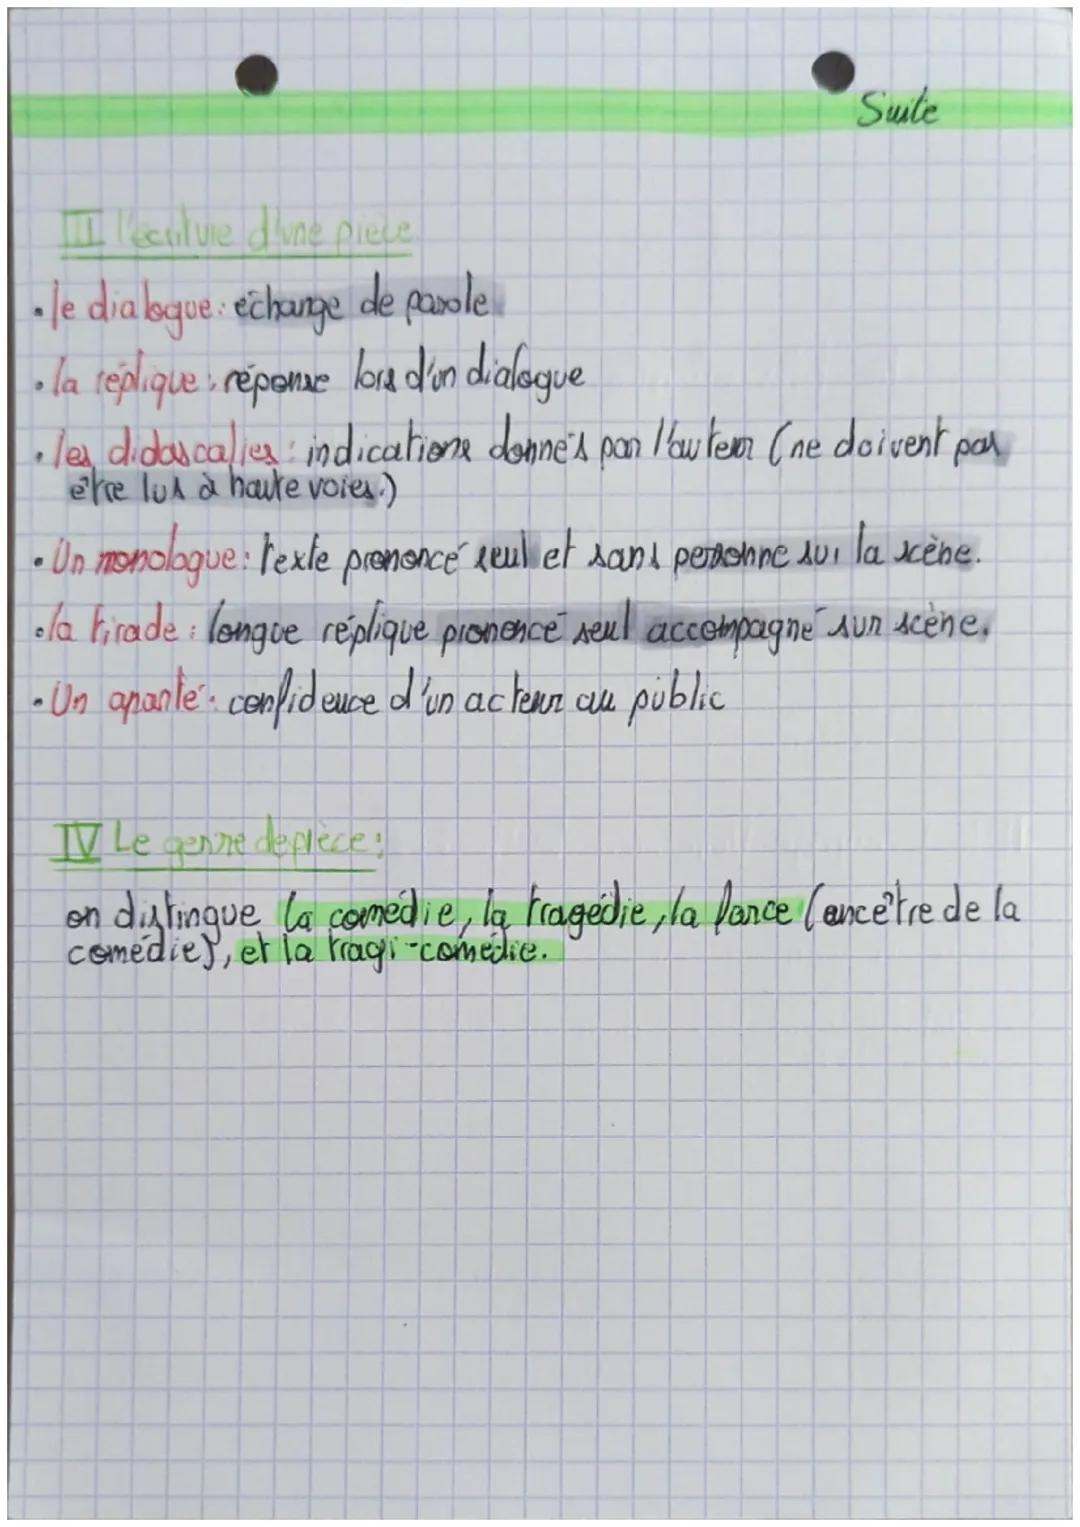 Suite
III l'écriture d'une pièce
• le dialogue : échange de parole
• la réplique : réponse lors d'un dialogue
• les didascalies : indications donnés par l'auteur (ne doivent pas
être lus à haute voies.)
• Un monologue : texte prononcé seul et sans personne sur la scène.
• la tirade : longue réplique prononcé seul accompagné sur scène.
• Un aparté : confidence d'un acteur au public
IV Le genre de pièce :
on distingue la comédie, la tragédie, la farce (ancêtre de la
comédie), et la tragi-comédie.